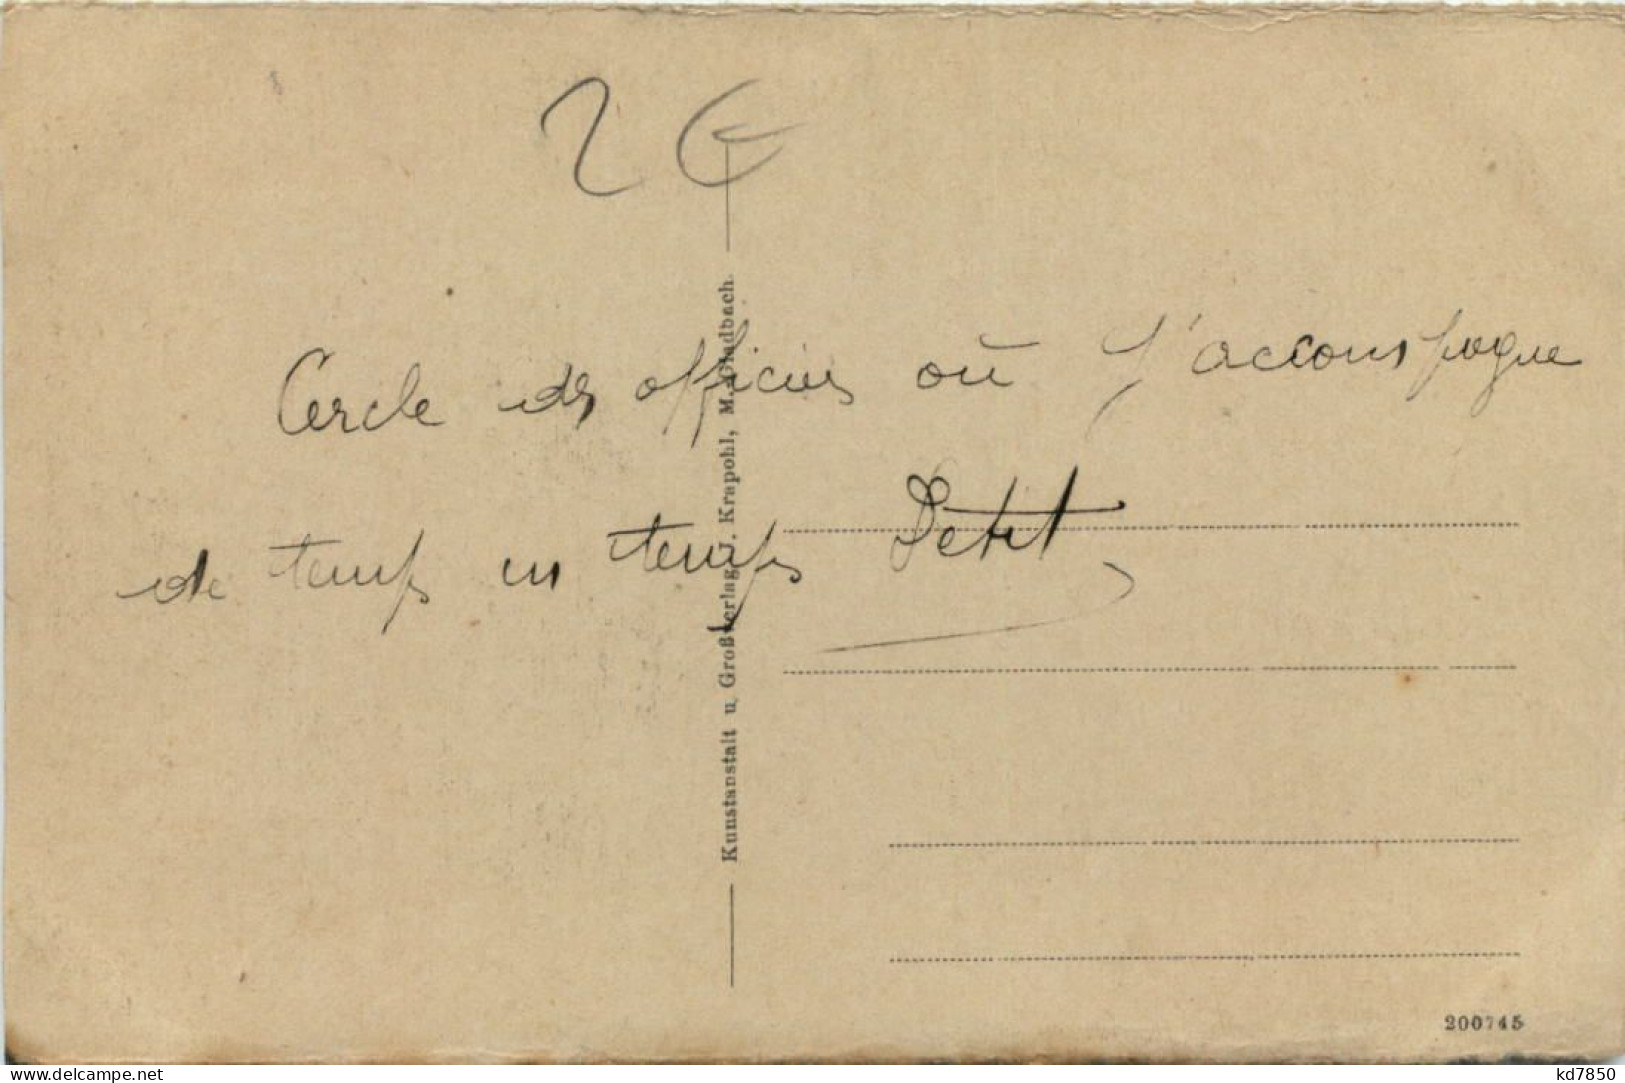 2 €
Cercle des officiers où j'accompagne
de temps en temps Petit
Kunstanstalt u. Großverlag J. Krapohl, M.-Gladbach.
200745
kd7850